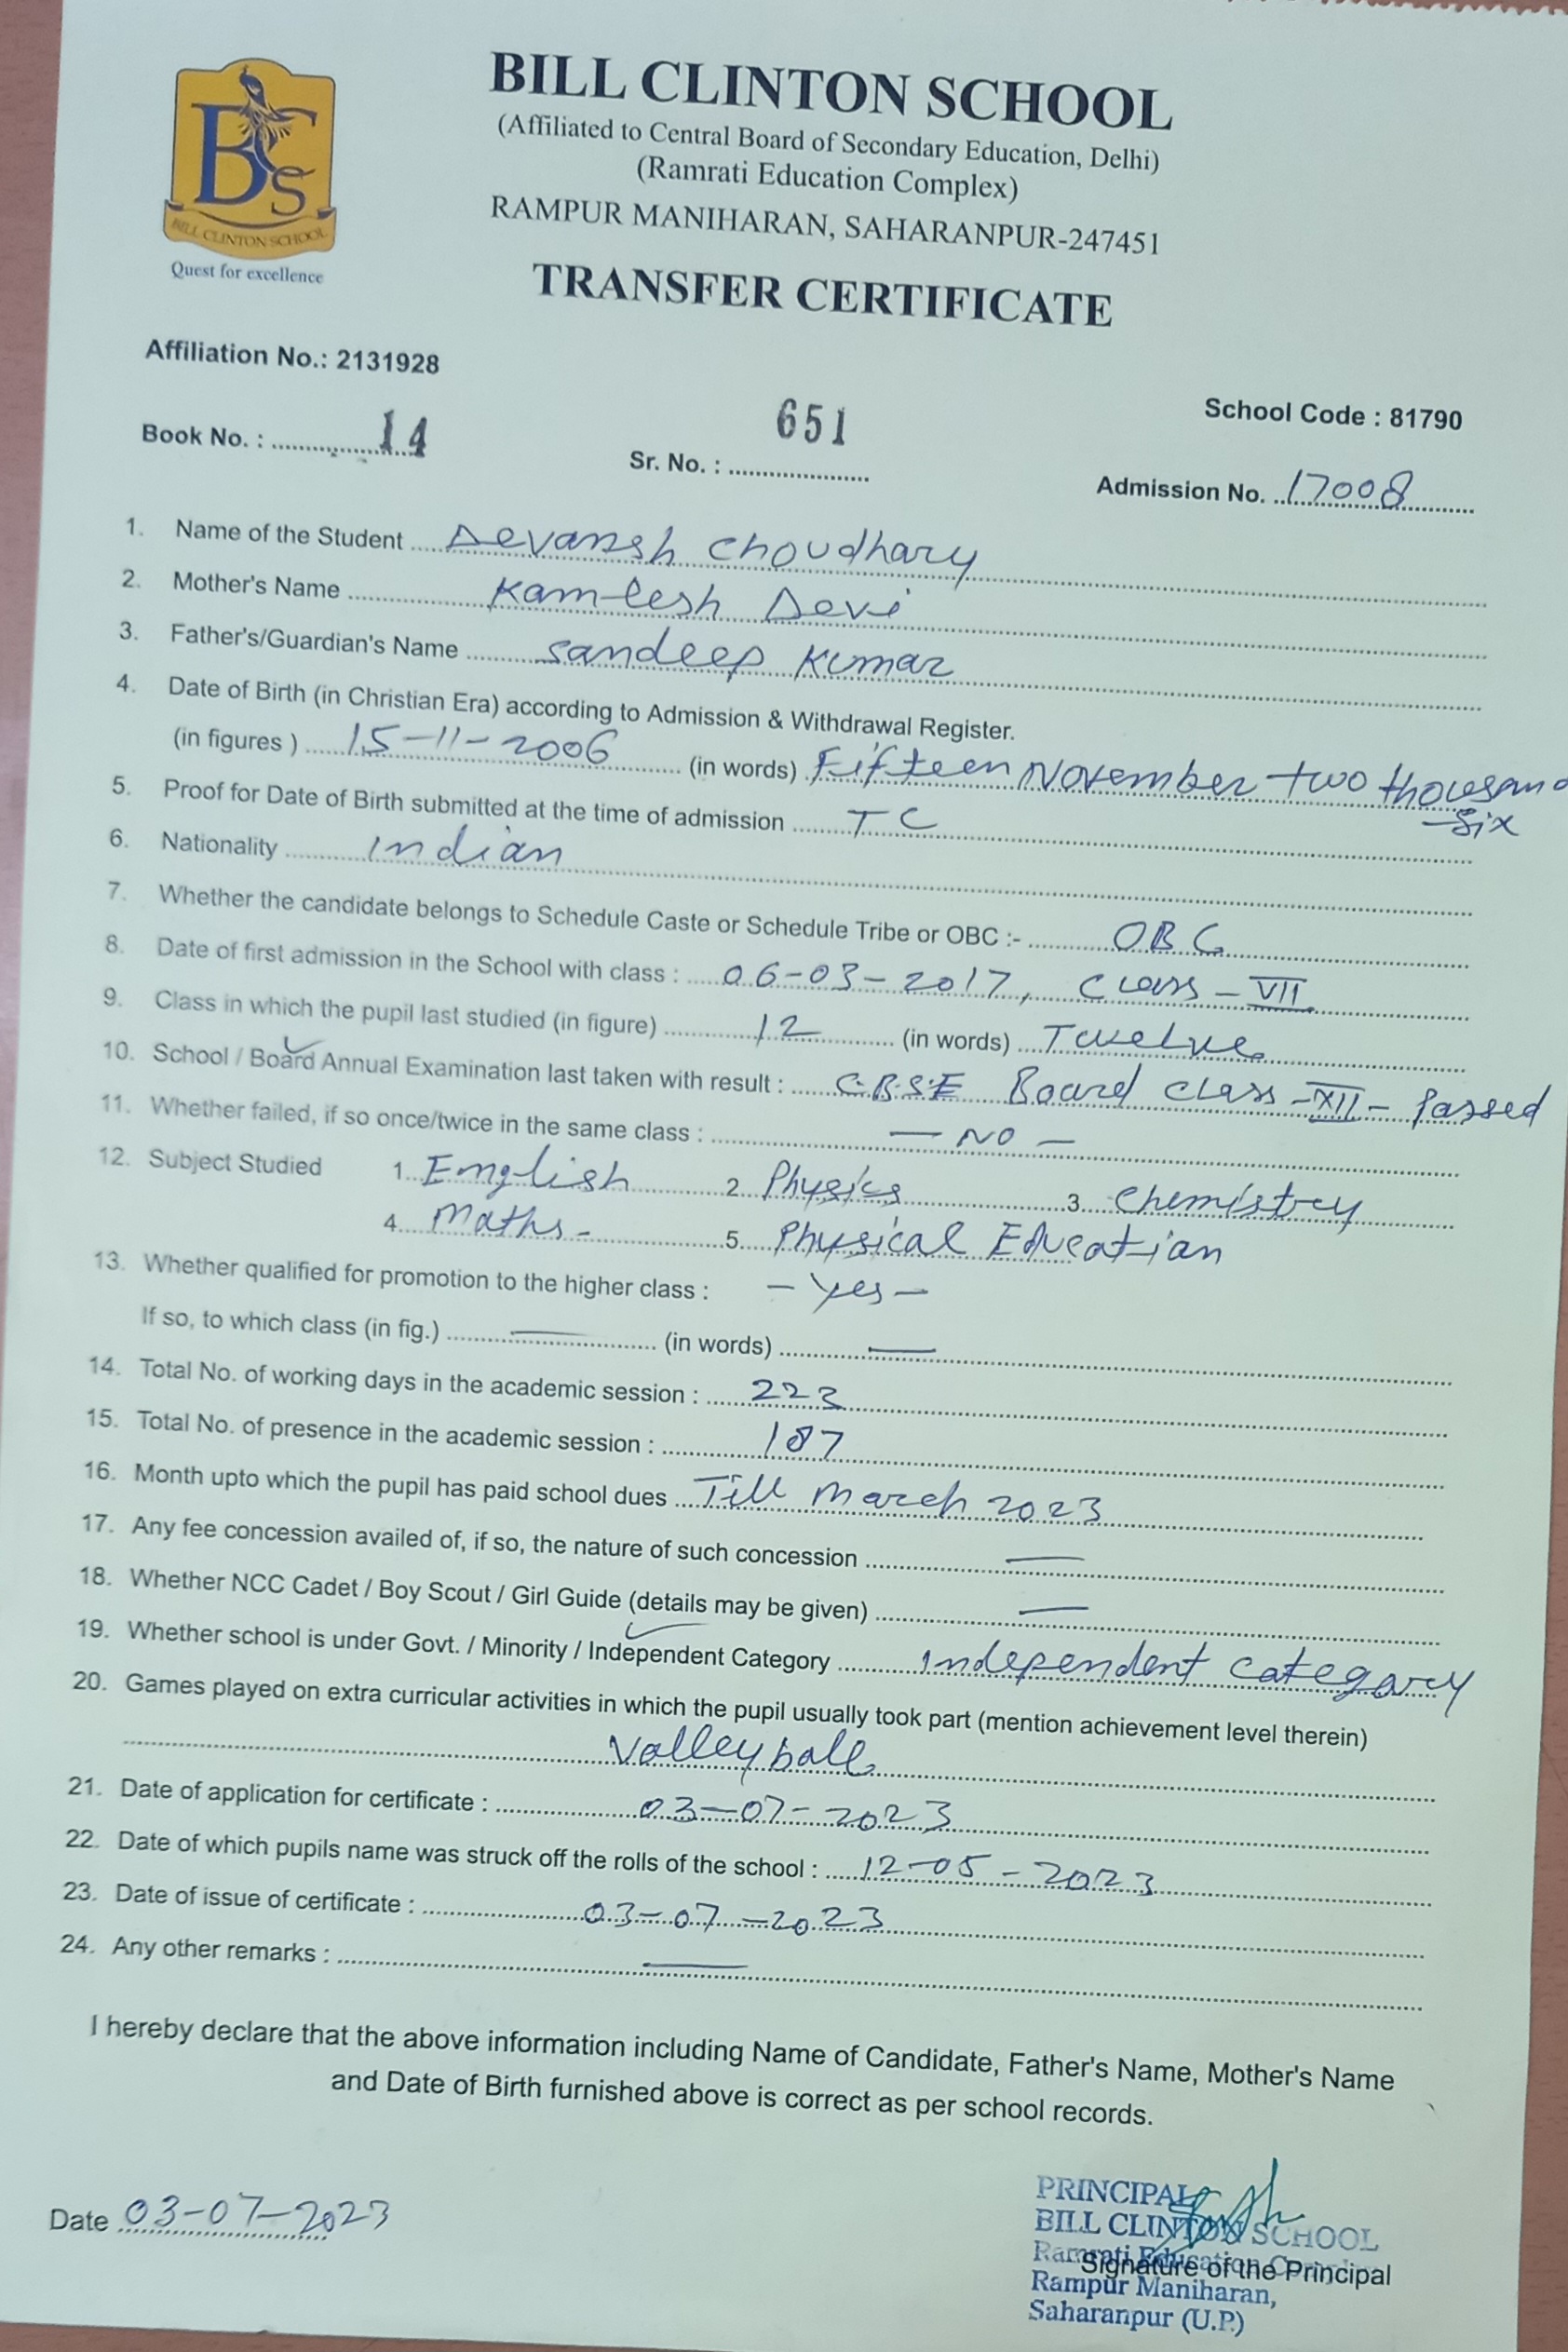 BCS
BILL CLINTON SCHOOL
Quest for excellence
BILL CLINTON SCHOOL
(Affiliated to Central Board of Secondary Education, Delhi)
(Ramrati Education Complex)
RAMPUR MANIHARAN, SAHARANPUR-247451
TRANSFER CERTIFICATE
Affiliation No.: 2131928
School Code : 81790
Book No. : 14 Sr. No. : 651 Admission No. 17008
1. Name of the Student Devansh Choudhary
2. Mother's Name Kamlesh Devi
3. Father's/Guardian's Name Sandeep Kumar
4. Date of Birth (in Christian Era) according to Admission & Withdrawal Register.
(in figures ) 15-11-2006 (in words) Fifteen November two thousand
six
5. Proof for Date of Birth submitted at the time of admission TC
6. Nationality Indian
7. Whether the candidate belongs to Schedule Caste or Schedule Tribe or OBC :- OBC
8. Date of first admission in the School with class : 06-03-2017, Class - VII
9. Class in which the pupil last studied (in figure) 12 (in words) Twelve
10. School / Board Annual Examination last taken with result : C.B.S.E Board Class -XII- Passed
11. Whether failed, if so once/twice in the same class : — NO —
12. Subject Studied 1. English 2. Physics 3. Chemistry
4. Maths - 5. Physical Education
13. Whether qualified for promotion to the higher class : - Yes -
If so, to which class (in fig.) — (in words) —
14. Total No. of working days in the academic session : 223
15. Total No. of presence in the academic session : 187
16. Month upto which the pupil has paid school dues Till March 2023
17. Any fee concession availed of, if so, the nature of such concession —
18. Whether NCC Cadet / Boy Scout / Girl Guide (details may be given) —
19. Whether school is under Govt. / Minority / Independent Category Independent Category
20. Games played on extra curricular activities in which the pupil usually took part (mention achievement level therein)
Volleyball
21. Date of application for certificate : 03-07-2023
22. Date of which pupils name was struck off the rolls of the school : 12-05-2023
23. Date of issue of certificate : 03-07-2023
24. Any other remarks : —
I hereby declare that the above information including Name of Candidate, Father's Name, Mother's Name
and Date of Birth furnished above is correct as per school records.
Date 03-07-2023
PRINCIPAL
BILL CLINTON SCHOOL
Ramrati Education
Signature of the Principal
Rampur Maniharan,
Saharanpur (U.P.)